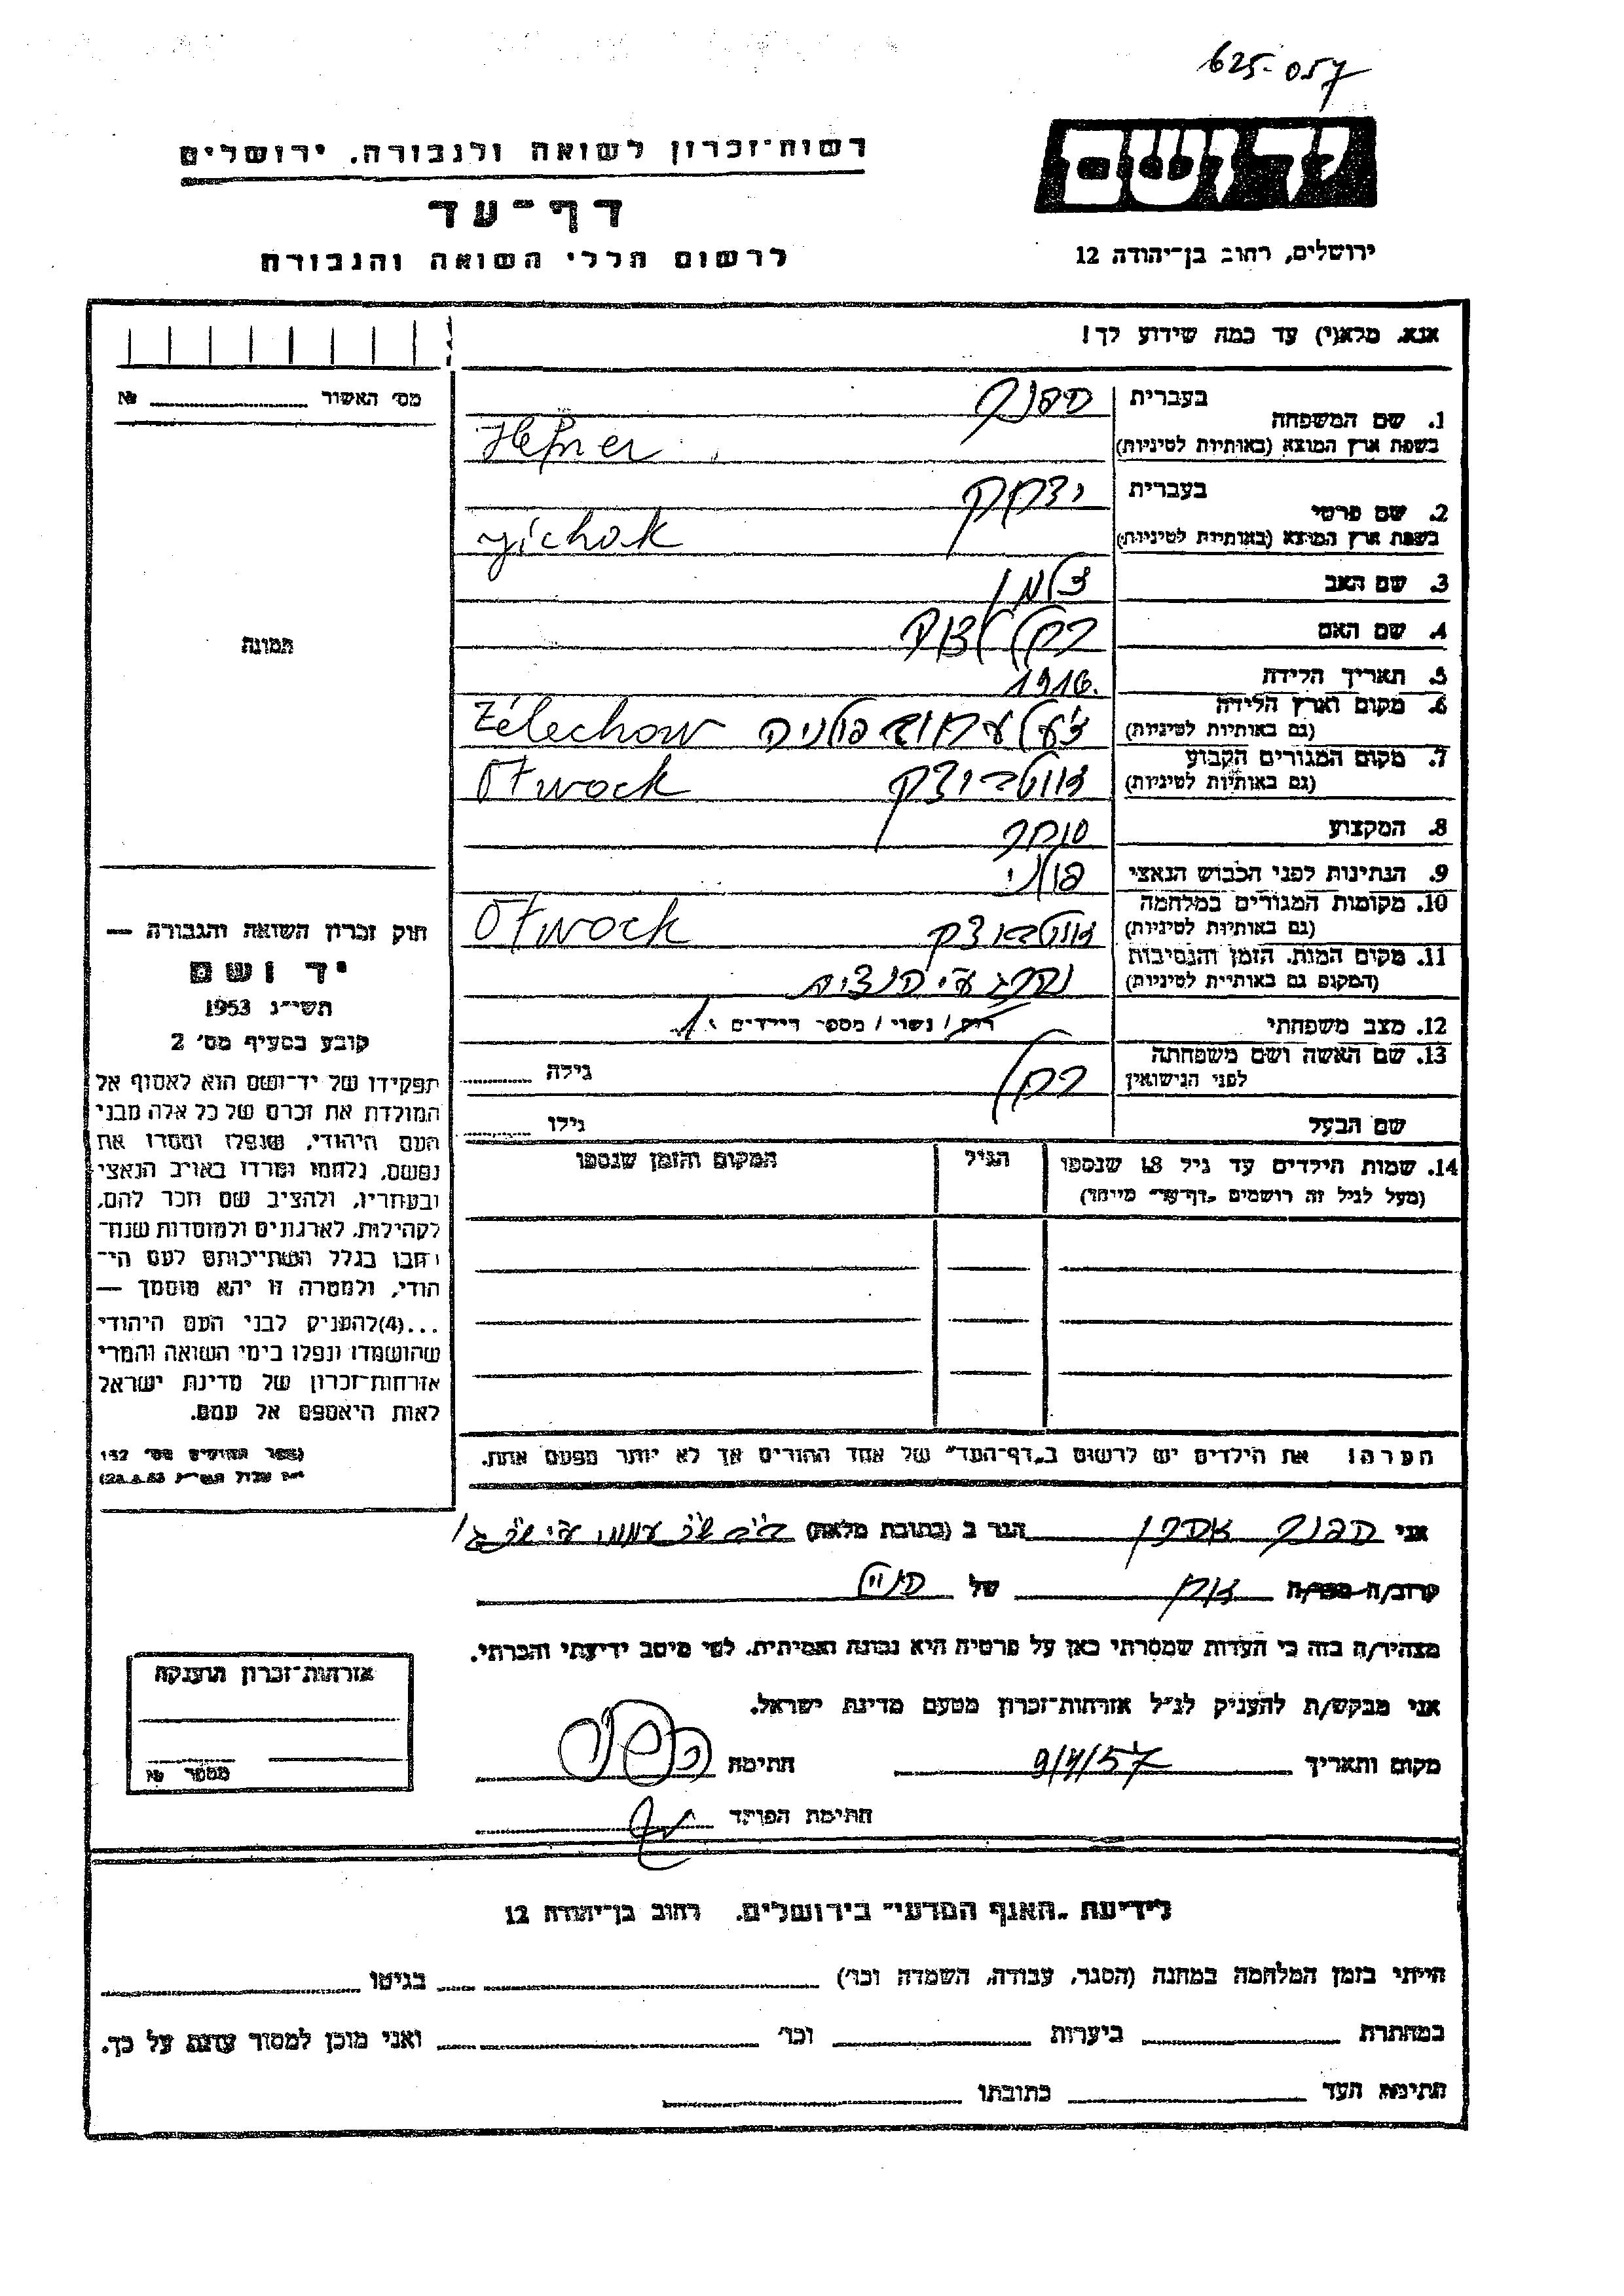 625-057
יד ושם
רשות־זכרון לשואה ולגבורה, ירושלים
דף־עד
לרשום חללי השואה והגבורה
ירושלים, רחוב בן־יהודה 12
אנא, מלא(י) עד כמה שידוע לך!
מס׳ האשור № 
תמונה
1. שם המשפחה בעברית הפנר
בשפת ארץ המוצא (באותיות לטיניות) Hefner
2. שם פרטי בעברית יצחק
בשפת ארץ המוצא (באותיות לטיניות) yichok
3. שם האב זלמן
4. שם האם רחל
5. תאריך הלידה 1916.
6. מקום וארץ הלידה (גם באותיות לטיניות) פולניה Zélechow
7. מקום המגורים הקבוע (גם באותיות לטיניות) אוטבוצק Otwock
8. המקצוע סוחר
9. הנתינות לפני הכבוש הנאצי פולני
10. מקומות המגורים במלחמה (גם באותיות לטיניות) אוטבוצק Otwock
11. מקום המות, הזמן והנסיבות (המקום גם באותיות לטיניות) נהרג ע״י הנצים
12. מצב משפחתי רוק / נשוי / מספר הילדים 1
13. שם האשה ושם משפחתה לפני הנישואין רחל גילה
שם הבעל גילו
14. שמות הילדים עד גיל 18 שנספו
(מעל לגיל זה רושמים „דף־עד״ מיוחד)
הגיל
המקום והזמן שנספו
הערה: את הילדים יש לרשום ב„דף־העד״ של אחד ההורים אך לא יותר מפעם אחת.
חוק זכרון השואה והגבורה —
יד ושם
תשי״ג 1953
קובע בסעיף מס׳ 2
תפקידו של יד־ושם הוא לאסוף אל
המולדת את זכרם של כל אלה מבני
העם היהודי, שנפלו ומסרו את
נפשם, נלחמו ומרדו באויב הנאצי
ובעוזריו, ולהציב שם וזכר להם,
לקהילות, לארגונים ולמוסדות שנח־
רבו בגלל השתייכותם לעם הי־
הודי, ולמטרה זו יהא מוסמך —
...(4)להעניק לבני העם היהודי
שהושמדו ונפלו בימי השואה והמרי
אזרחות־זכרון של מדינת ישראל
לאות היאספם אל עמם.
(ספר החוקים מס׳ 132
28.8.53)
אני הפנר אהרן הגר ב (כתובת מלאה)
קרוב/ה מכר/ה אח של הנ״ל
מצהיר/ה בזה כי העדות שמסרתי כאן על פרטיה היא נכונה ואמיתית, לפי מיטב ידיעתי והכרתי.
אני מבקש/ת להעניק לנ״ל אזרחות־זכרון מטעם מדינת ישראל.
מקום ותאריך 9/4/57 חתימה
חתימת הפוקד
אזרחות־זכרון הוענקה
מספר №
לידיעת „האגף המדעי״ בירושלים, רחוב בן־יהודה 12
הייתי בזמן המלחמה במחנה (הסגר, עבודה, השמדה וכו׳) בגיטו
במחתרת ביערות וכו׳ ואני מוכן למסור עדות על כך.
חתימת העד כתובתו